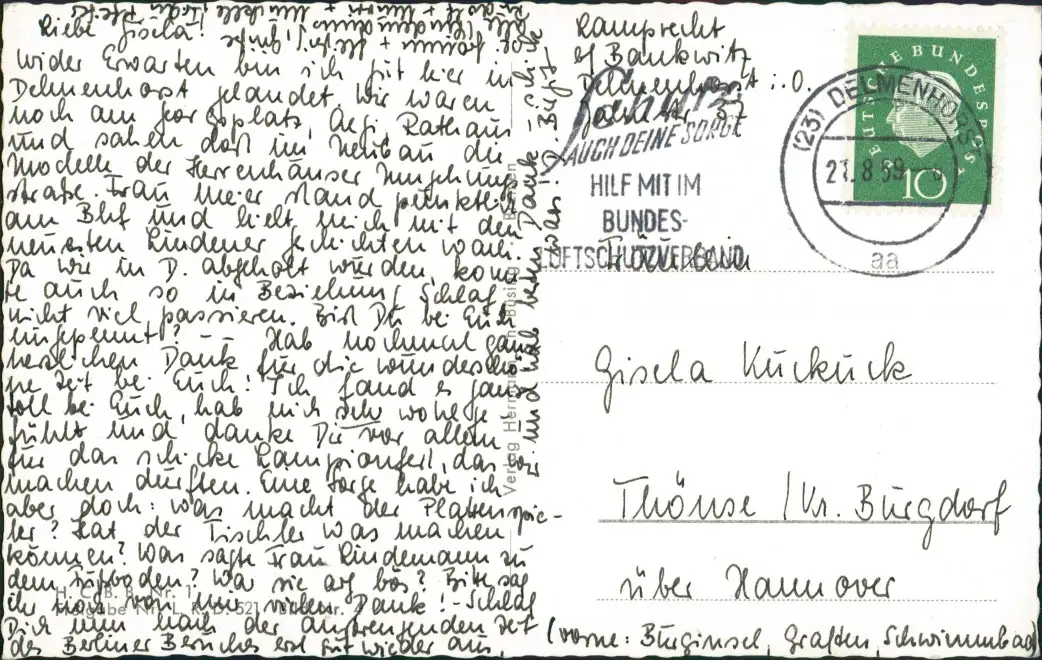 Liebe Gisela!
wider Erwarten bin ich gut hier in
Delmenhorst gelandet. Wir waren
noch am Aegi, Rathaus
und sahen dort im Neubau die
Modelle der Herrenhäuser Umgehung
straße. Frau Meier stand pünktlich
am Bhf und hielt mich mit den
neuesten Lindener Geschichten wach.
Da wir in D. abgeholt wurden, konn
te auch so in Beziehung Schlaf
nicht viel passieren. Bist Du bei Euch
eingepennt? – – Hab nochmal ganz
herzlichen Dank für die wunderschö
ne Zeit bei Euch! Ich fand es ganz
toll bei Euch, hab mich sehr wohl ge
fühlt und danke Dir vor allem
für das schicke Lampionfest, das wir
machen durften. Eine Sorge habe ich
aber doch: was macht der Plattenspie-
ler? Hat der Tischler was machen
können? Was sagte Frau Lindemann zu
dem Fußboden? War sie arg bös? Bitte sag
ihr noch von mir vielen Dank! – Schlaf
Dich nun nach der anstrengenden Zeit
des Berliner Besuches erst gut wieder aus,
und hab besten Dank
H. C. B. B. Nr. 1
Verlag Hermann
Lamprecht
b/ Bankwitz
Delmenhorst i. O.
37
AUCH DEINE SORGE
HILF MIT IM
BUNDES-
LUFTSCHUTZVERBAND
(23) DELMENHORST
21.8.59
aa
DEUTSCHE BUNDESPOST
10
Fräulein
Gisela Kuckuck
Thönse / Kr. Burgdorf
über Hannover
(vorne: Burginsel, Graften, Schwimmbad)